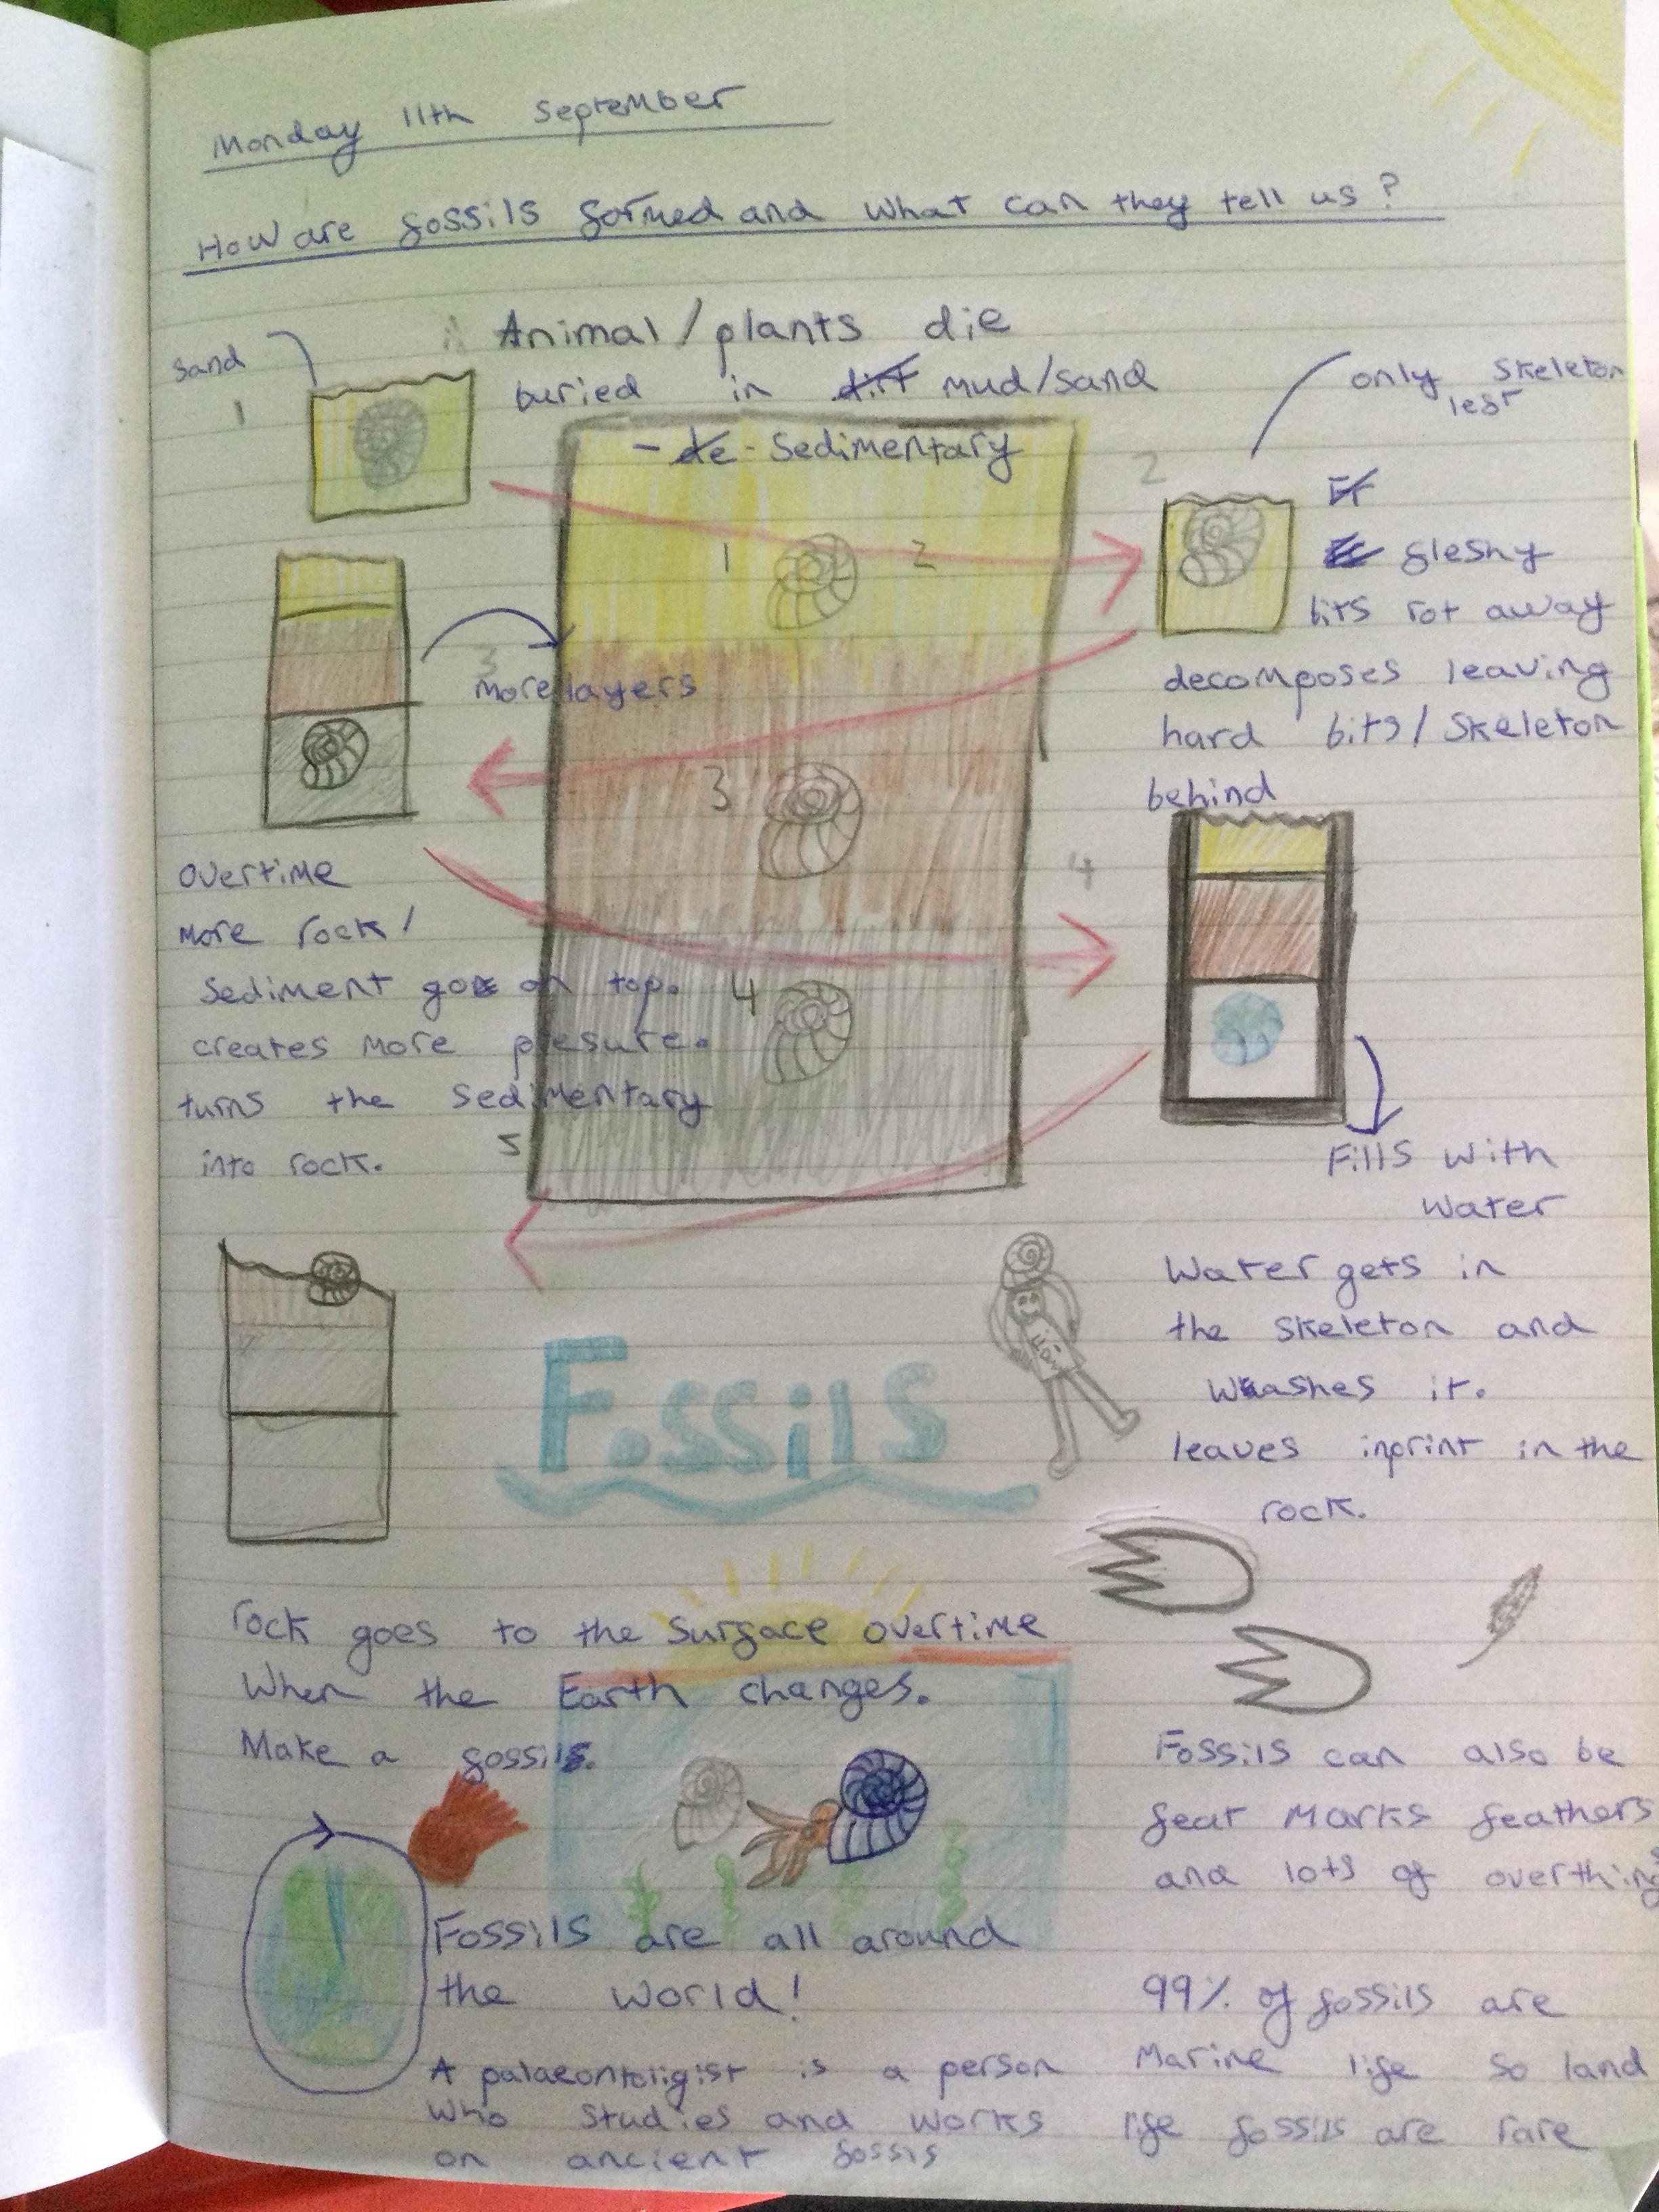 Monday 11th September
How are fossils formed and what can they tell us?
sand
1
Animal/plants die
buried in dirt mud/sand
- de - Sedimentary
only skeleton
left
2
fleshy
bits rot away
decomposes leaving
hard bits/skeleton
behind
1 2
3
more layers
3
4
5
overtime
more rock/
sediment goes on top.
creates more presure.
turns the sedimentary
into rock.
4
Fills with
water
Water gets in
the skeleton and
washes it.
leaves inprint in the
rock.
Fossils
rock goes to the surface overtime
When the Earth changes.
Make a fossil.
Fossils can also be
feat marks feathers
and lots of overthings
Fossils are all around
the world!
A palaeontoligist is a person
who studies and works
on ancient fossis
99% of fossils are
marine life so land
life fossils are rare